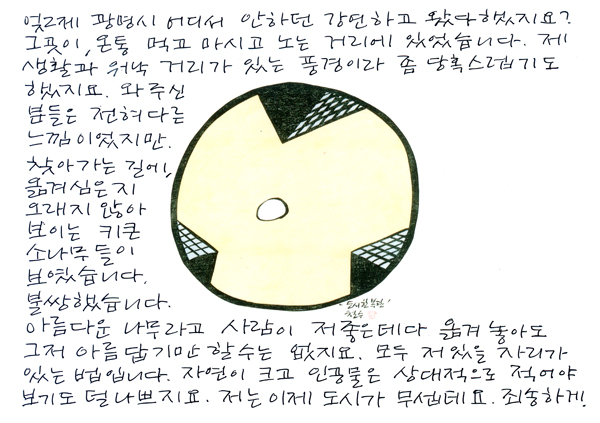 엊그제 광명시 어디서 안하던 강연하고 왔다 했지요?
그곳이, 온통 먹고 마시고 노는 거리에 있었습니다. 제
생활과 워낙 거리가 있는 풍경이라 좀 당혹스럽기도
했지요. 와주신
분들은 전혀다른
느낌이었지만.
찾아가는 길에,
옮겨심은지
오래지 않아
보이는 키큰
소나무들이
보였습니다.
불쌍했습니다.
아름다운 나무라고 사람이 저좋은데다 옮겨 놓아도
그저 아름답기만 할수는 없지요. 모두 저있을 자리가
있는 법입니다. 자연이 크고 인공물은 상대적으로 적어야
보기도 덜나쁘지요. 저는이제 도시가 무섭데요. 죄송하게!